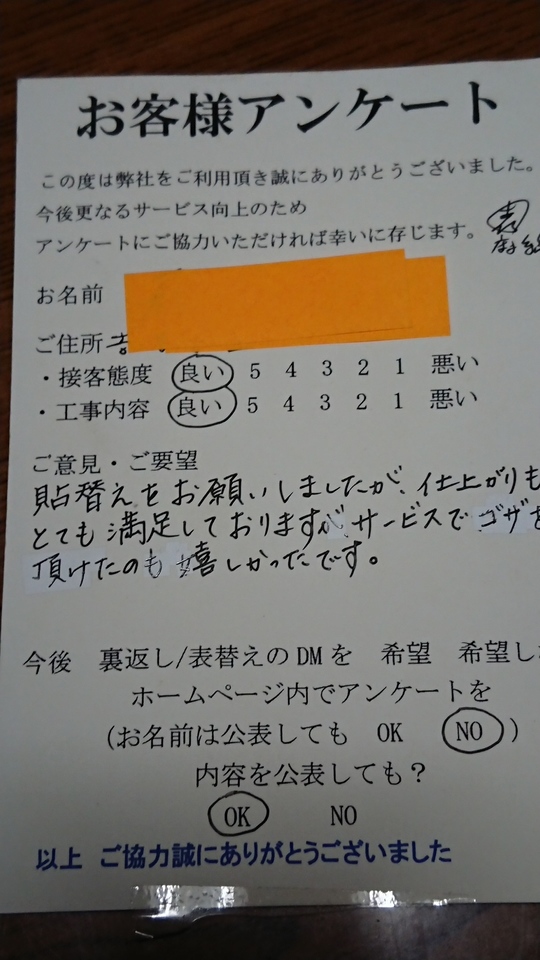 お客様アンケート
この度は弊社をご利用頂き誠にありがとうございました。
今後更なるサービス向上のため
アンケートにご協力いただければ幸いに存じます。
表
お名前
ご住所
・接客態度 良い 5 4 3 2 1 悪い
・工事内容 良い 5 4 3 2 1 悪い
ご意見・ご要望
貼替えをお願いしましたが、仕上がりも
とても満足しておりますが、サービスでゴザを
頂けたのも嬉しかったです。
今後 裏返し/表替えのDMを 希望 希望し
ホームページ内でアンケートを
(お名前は公表しても OK NO)
内容を公表しても?
OK NO
以上 ご協力誠にありがとうございました